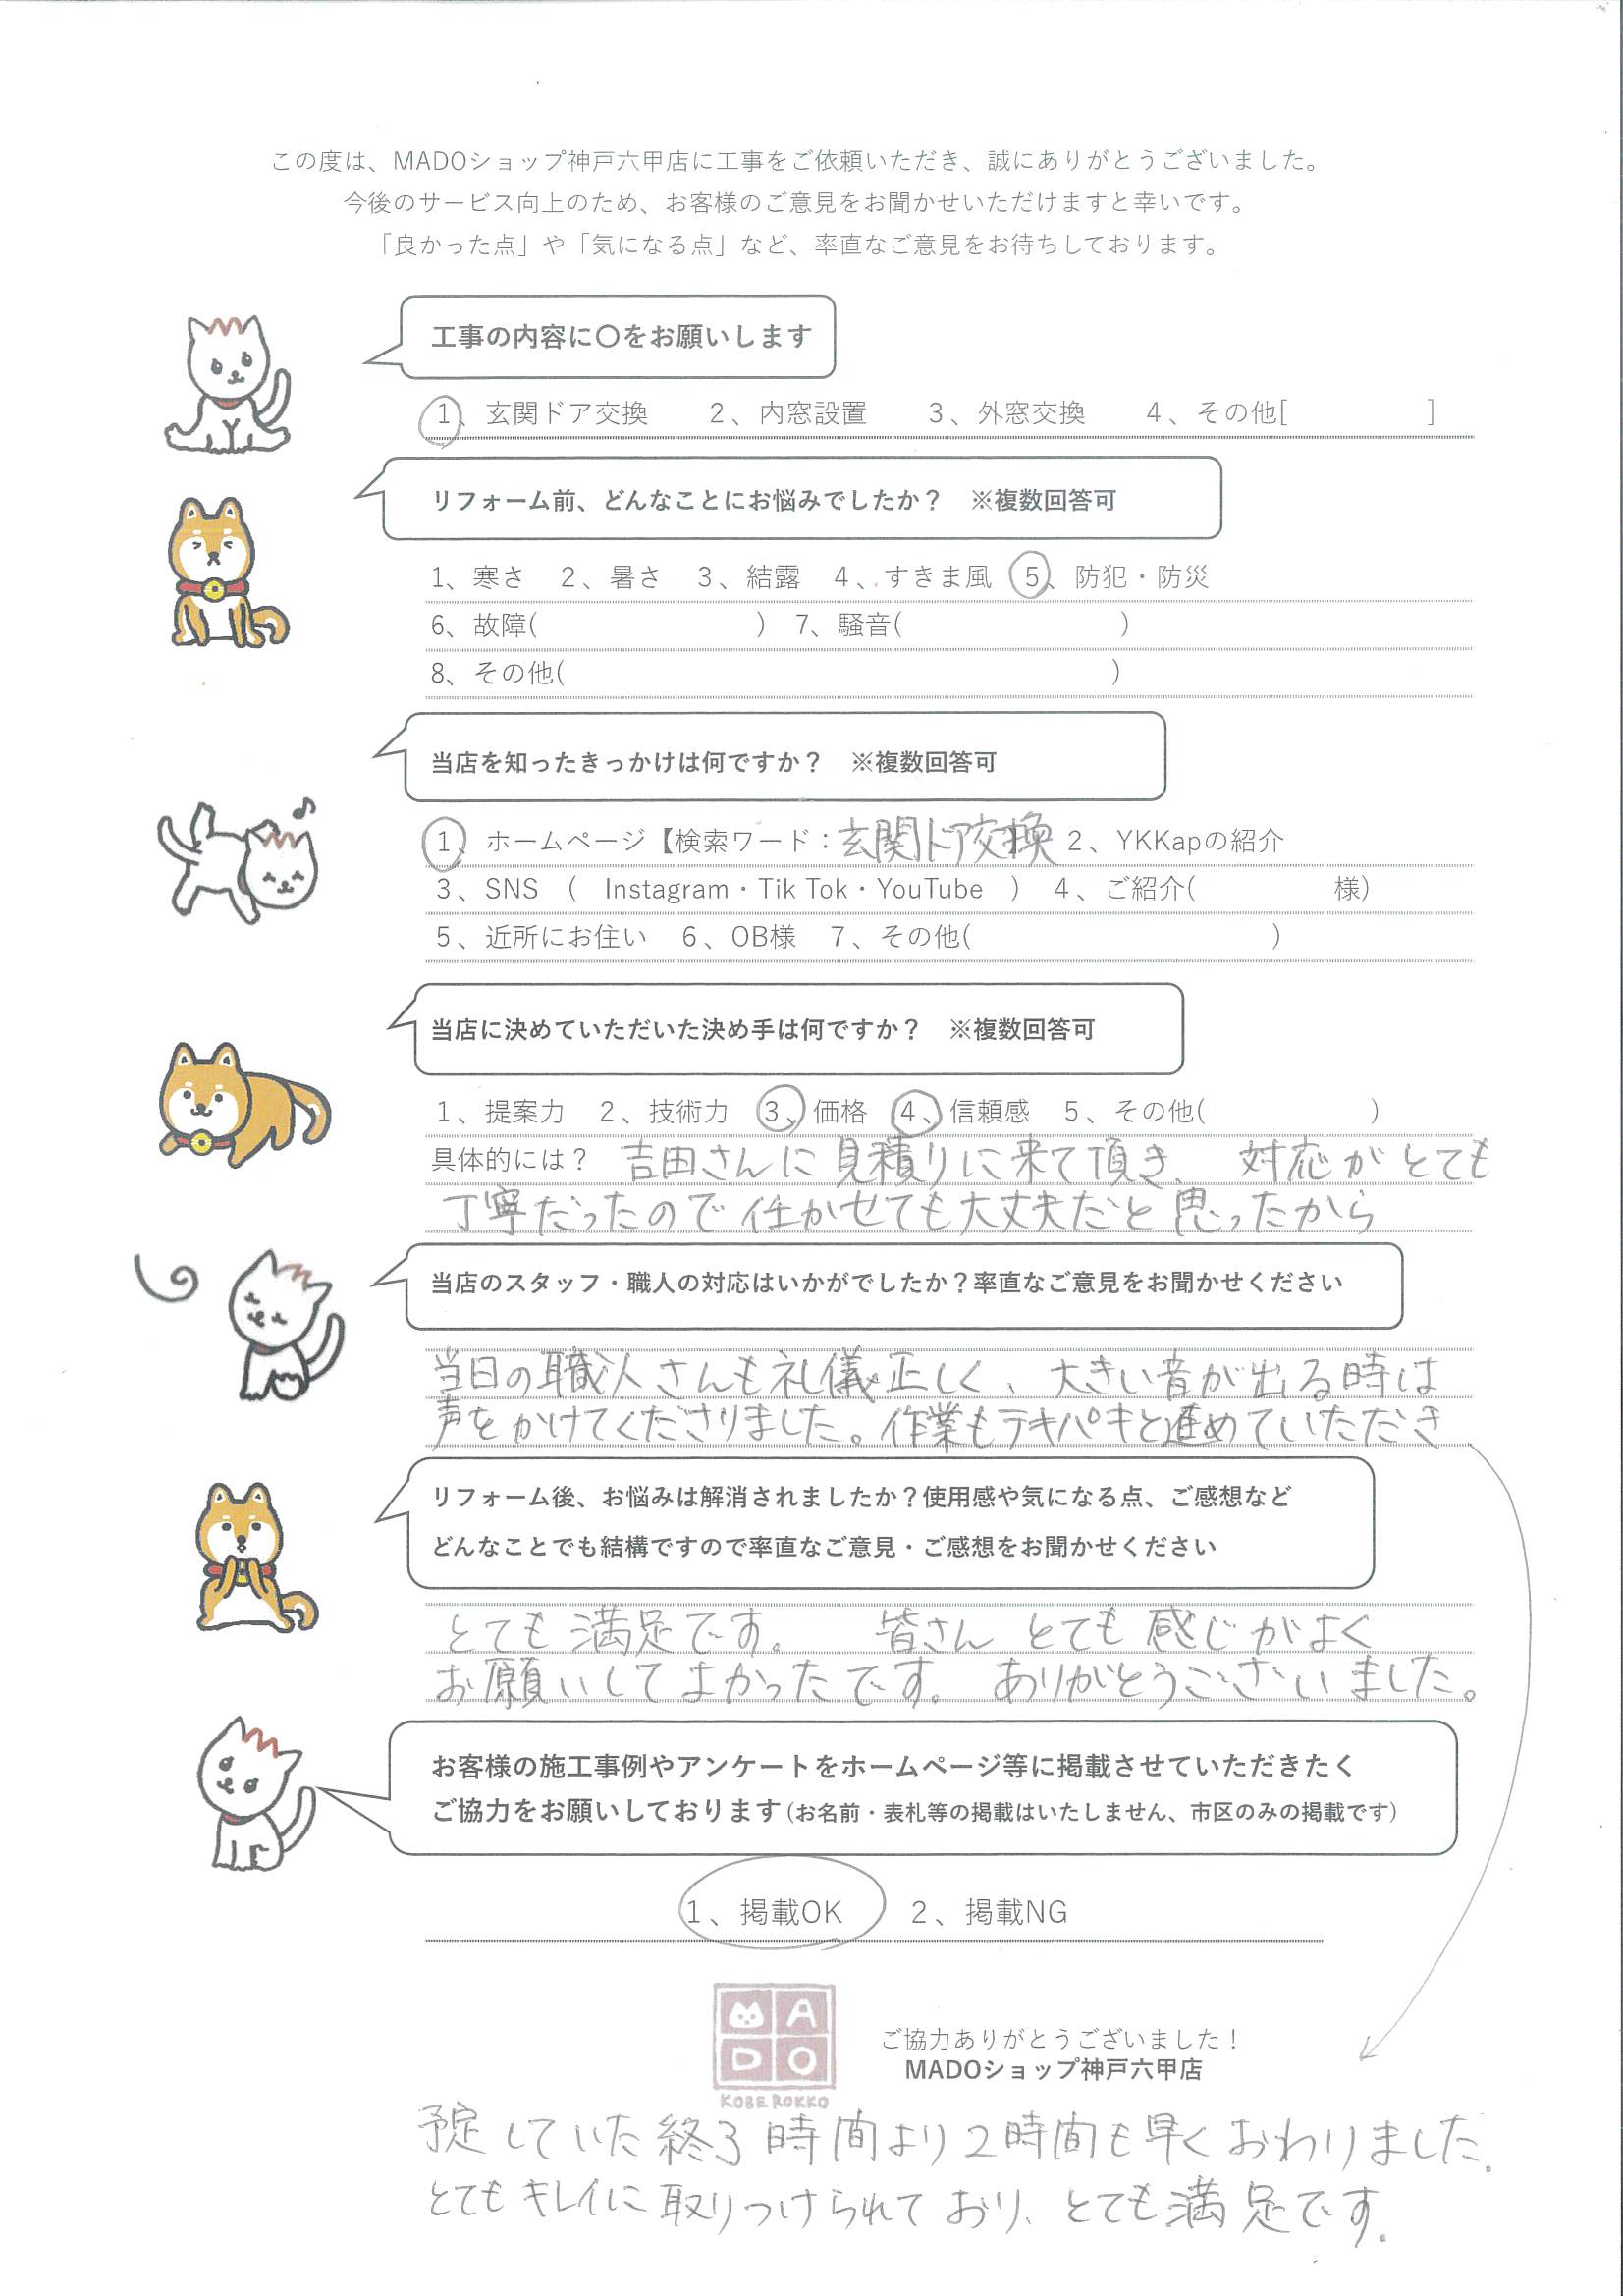 この度は、MADOショップ神戸六甲店に工事をご依頼いただき、誠にありがとうございました。
今後のサービス向上のため、お客様のご意見をお聞かせいただけますと幸いです。
「良かった点」や「気になる点」など、率直なご意見をお待ちしております。
工事の内容に〇をお願いします
1、玄関ドア交換 2、内窓設置 3、外窓交換 4、その他[ ]
リフォーム前、どんなことにお悩みでしたか？ ※複数回答可
1、寒さ 2、暑さ 3、結露 4、すきま風 5、防犯・防災
6、故障( ) 7、騒音( )
8、その他( )
当店を知ったきっかけは何ですか？ ※複数回答可
1、ホームページ【検索ワード：玄関ドア交換 2、YKKapの紹介
3、SNS ( Instagram・Tik Tok・YouTube ) 4、ご紹介( 様)
5、近所にお住い 6、OB様 7、その他( )
当店に決めていただいた決め手は何ですか？ ※複数回答可
1、提案力 2、技術力 3、価格 4、信頼感 5、その他( )
具体的には？ 吉田さんに見積りに来て頂き、対応がとても
丁寧だったので任かせても大丈夫だと思ったから
当店のスタッフ・職人の対応はいかがでしたか？率直なご意見をお聞かせください
当日の職人さんも礼儀正しく、大きい音が出る時は
声をかけてくださりました。作業もテキパキと進めていただき
リフォーム後、お悩みは解消されましたか？使用感や気になる点、ご感想など
どんなことでも結構ですので率直なご意見・ご感想をお聞かせください
とても満足です。 皆さん とても感じがよく
お願いしてよかったです。ありがとうございました。
お客様の施工事例やアンケートをホームページ等に掲載させていただきたく
ご協力をお願いしております(お名前・表札等の掲載はいたしません、市区のみの掲載です)
1、掲載OK 2、掲載NG
MADO
KOBE ROKKO
ご協力ありがとうございました！
MADOショップ神戸六甲店
予定していた終了時間より2時間も早くおわりました。
とてもキレイに取りつけられており、とても満足です。